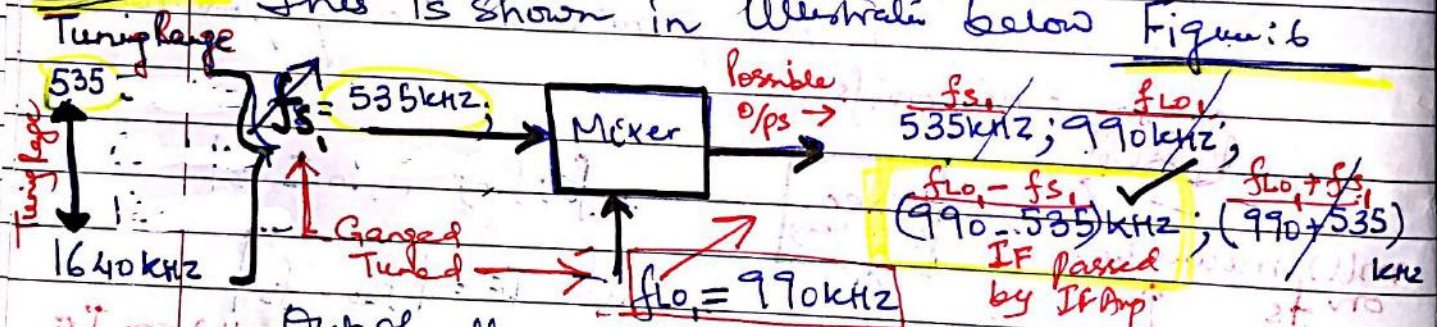 This is shown in Illustratn below Figure: 6
Tuning Range
535
Tuning Range
1640kHz
fs₁ = 535kHz;
Ganged
Tuned
Mixer
fLO₁ = 990kHz
Possible
O/ps →
fs₁ fLO₁
535kHz; 990kHz;
fLO₁ - fs₁ ✓ fLO₁ + fs₁
(990 - 535)kHz; (990+535)
kHz
IF passed
by IF Amp.
Out of